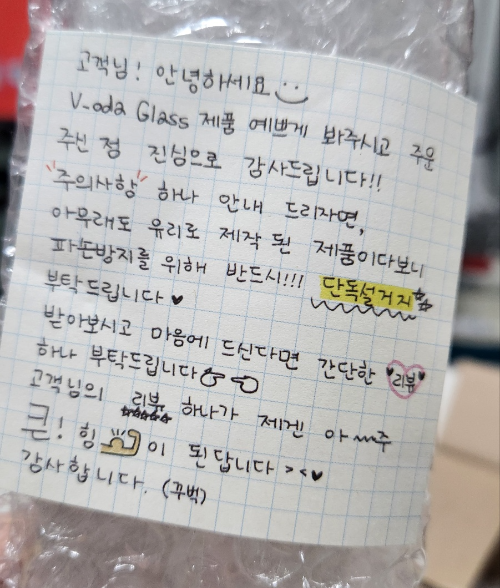 고객님! 안녕하세요
V-oda Glass 제품 예쁘게 봐주시고 주문
주신 점 진심으로 감사드립니다!!
"주의사항" 하나 안내 드리자면,
아무래도 유리로 제작 된 제품이다보니
파손방지를 위해 반드시!!! 단독설거지
부탁드립니다 ♥
받아보시고 마음에 드신다면 간단한 리뷰
하나 부탁드립니다
고객님의 리뷰 하나가 제겐 아~~주
큰! 힘 이 된답니다 >< ♥
감사합니다. (꾸벅)